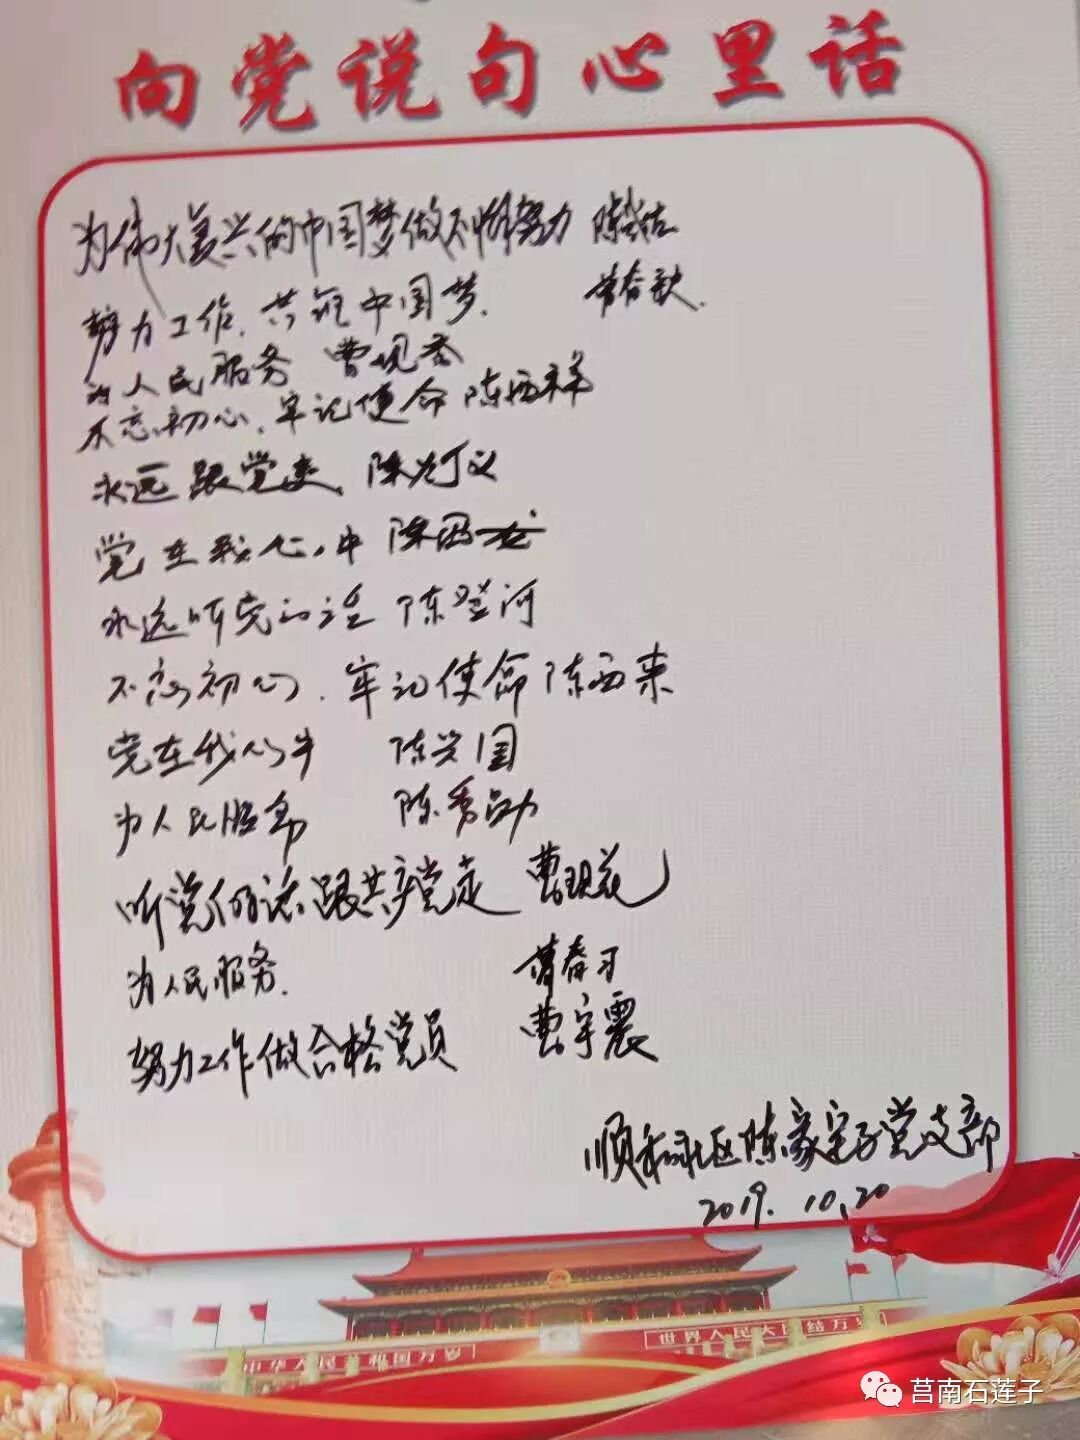 向党说句心里话
为伟大复兴的中国梦做不懈努力 陈
努力工作.共筑中国梦. 曹春
为人民服务 曹现香
不忘初心、牢记使命 陈西祥
永远跟党走 陈为义
党在我心中 陈西龙
永远听党的话 陈登河
不忘初心、牢记使命 陈西来
党在我心中 陈兴国
为人民服务 陈秀
听党的话跟共产党走 曹现花
为人民服务. 曹春习
努力工作做合格党员 曹宇震
顺和社区陈家宅子党支部
2019.10.20
中华人民共和国万岁
世界人民大团结万岁
莒南石莲子